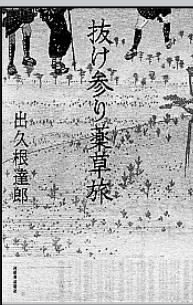 抜け参り薬草旅
出久根達郎